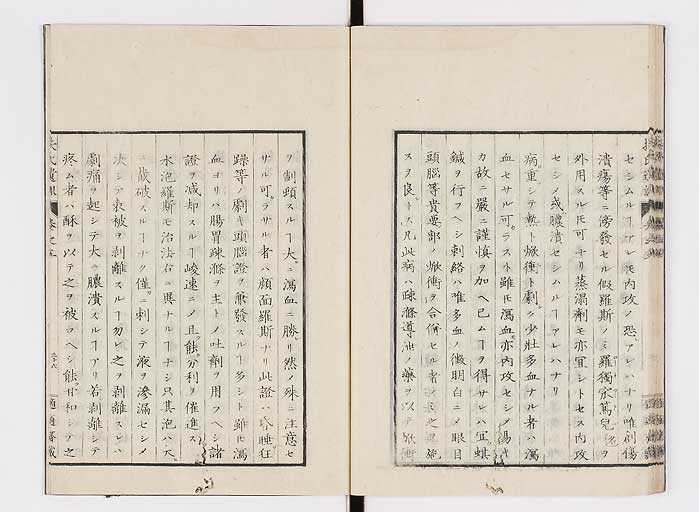 セシムルヿアレ𪜈内攻ノ恐アレハナリ唯創傷
潰瘍等ニ傍發セル假羅斯ノミ羅獨密篤兒ヲ
外用スル𪜈可ナリ蒸溻劑モ亦宜シトセス内攻
セシメ或膿潰セシムルヿアレハナリ
病重シテ熱ト焮衝ト劇ク少壯多血ナル者ハ瀉
血セサル可ラスト雖𪜈瀉血亦内攻セシメ易キ
カ故ニ嚴ニ謹慎ヲ加ヘ已ムヿヲ得サレハ宜蜞
鍼ヲ行フヘシ刺絡ハ唯多血ノ徴明白ニメ眼目
頭腦等貴要部ノ焮衝ヲ合併セル者
スヲ良トス凡此病ハ疎滌導泄ノ藥ヲ以テ焮衝
ヲ制頸スルヿ大ニ瀉血ニ勝レリ然ノ殊ニ注意セ
サル可ラサル者ハ顔面羅斯ナリ此證ハ昏睡狂
躁等ノ劇キ頭腦證ヲ兼發スルヿ多シト雖𪜈瀉
血ヨリハ腸胃疎滌ヲ主トノ吐劑ヲ用フヘシ諸
證ヲ減却スルヿ峻速ニノ且蝕分利ヲ催進ス
水泡羅斯モ治法右ニ異ナルヿナシ只其泡ハ天
ニ截破スルヿナク僅ニ刺シテ液ヲ滲漏セシメ
决シテ表被ヲ剥離スルヿ勿レ之ヲ剥離スレハ
劇痛ヲ起シテ大ニ膿潰スルヿアリ若剥離シテ
疼ム者ハ酥ヲ以テ之ヲ被フヘシ蝕甘和シテ之